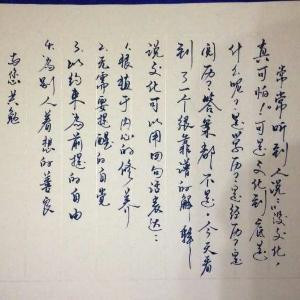 常常听到人说："没文化，
真可怕！"可是文化到底是
什么呢？是学历？是经历？是
阅历？答案都不是。今天看
到了一个很靠谱的解释，
说文化可以用四句话表达：
1.根植于内心的修养
2.无需要提醒的自觉
3.以约束为前提的自由
4.为别人着想的善良
与您共勉